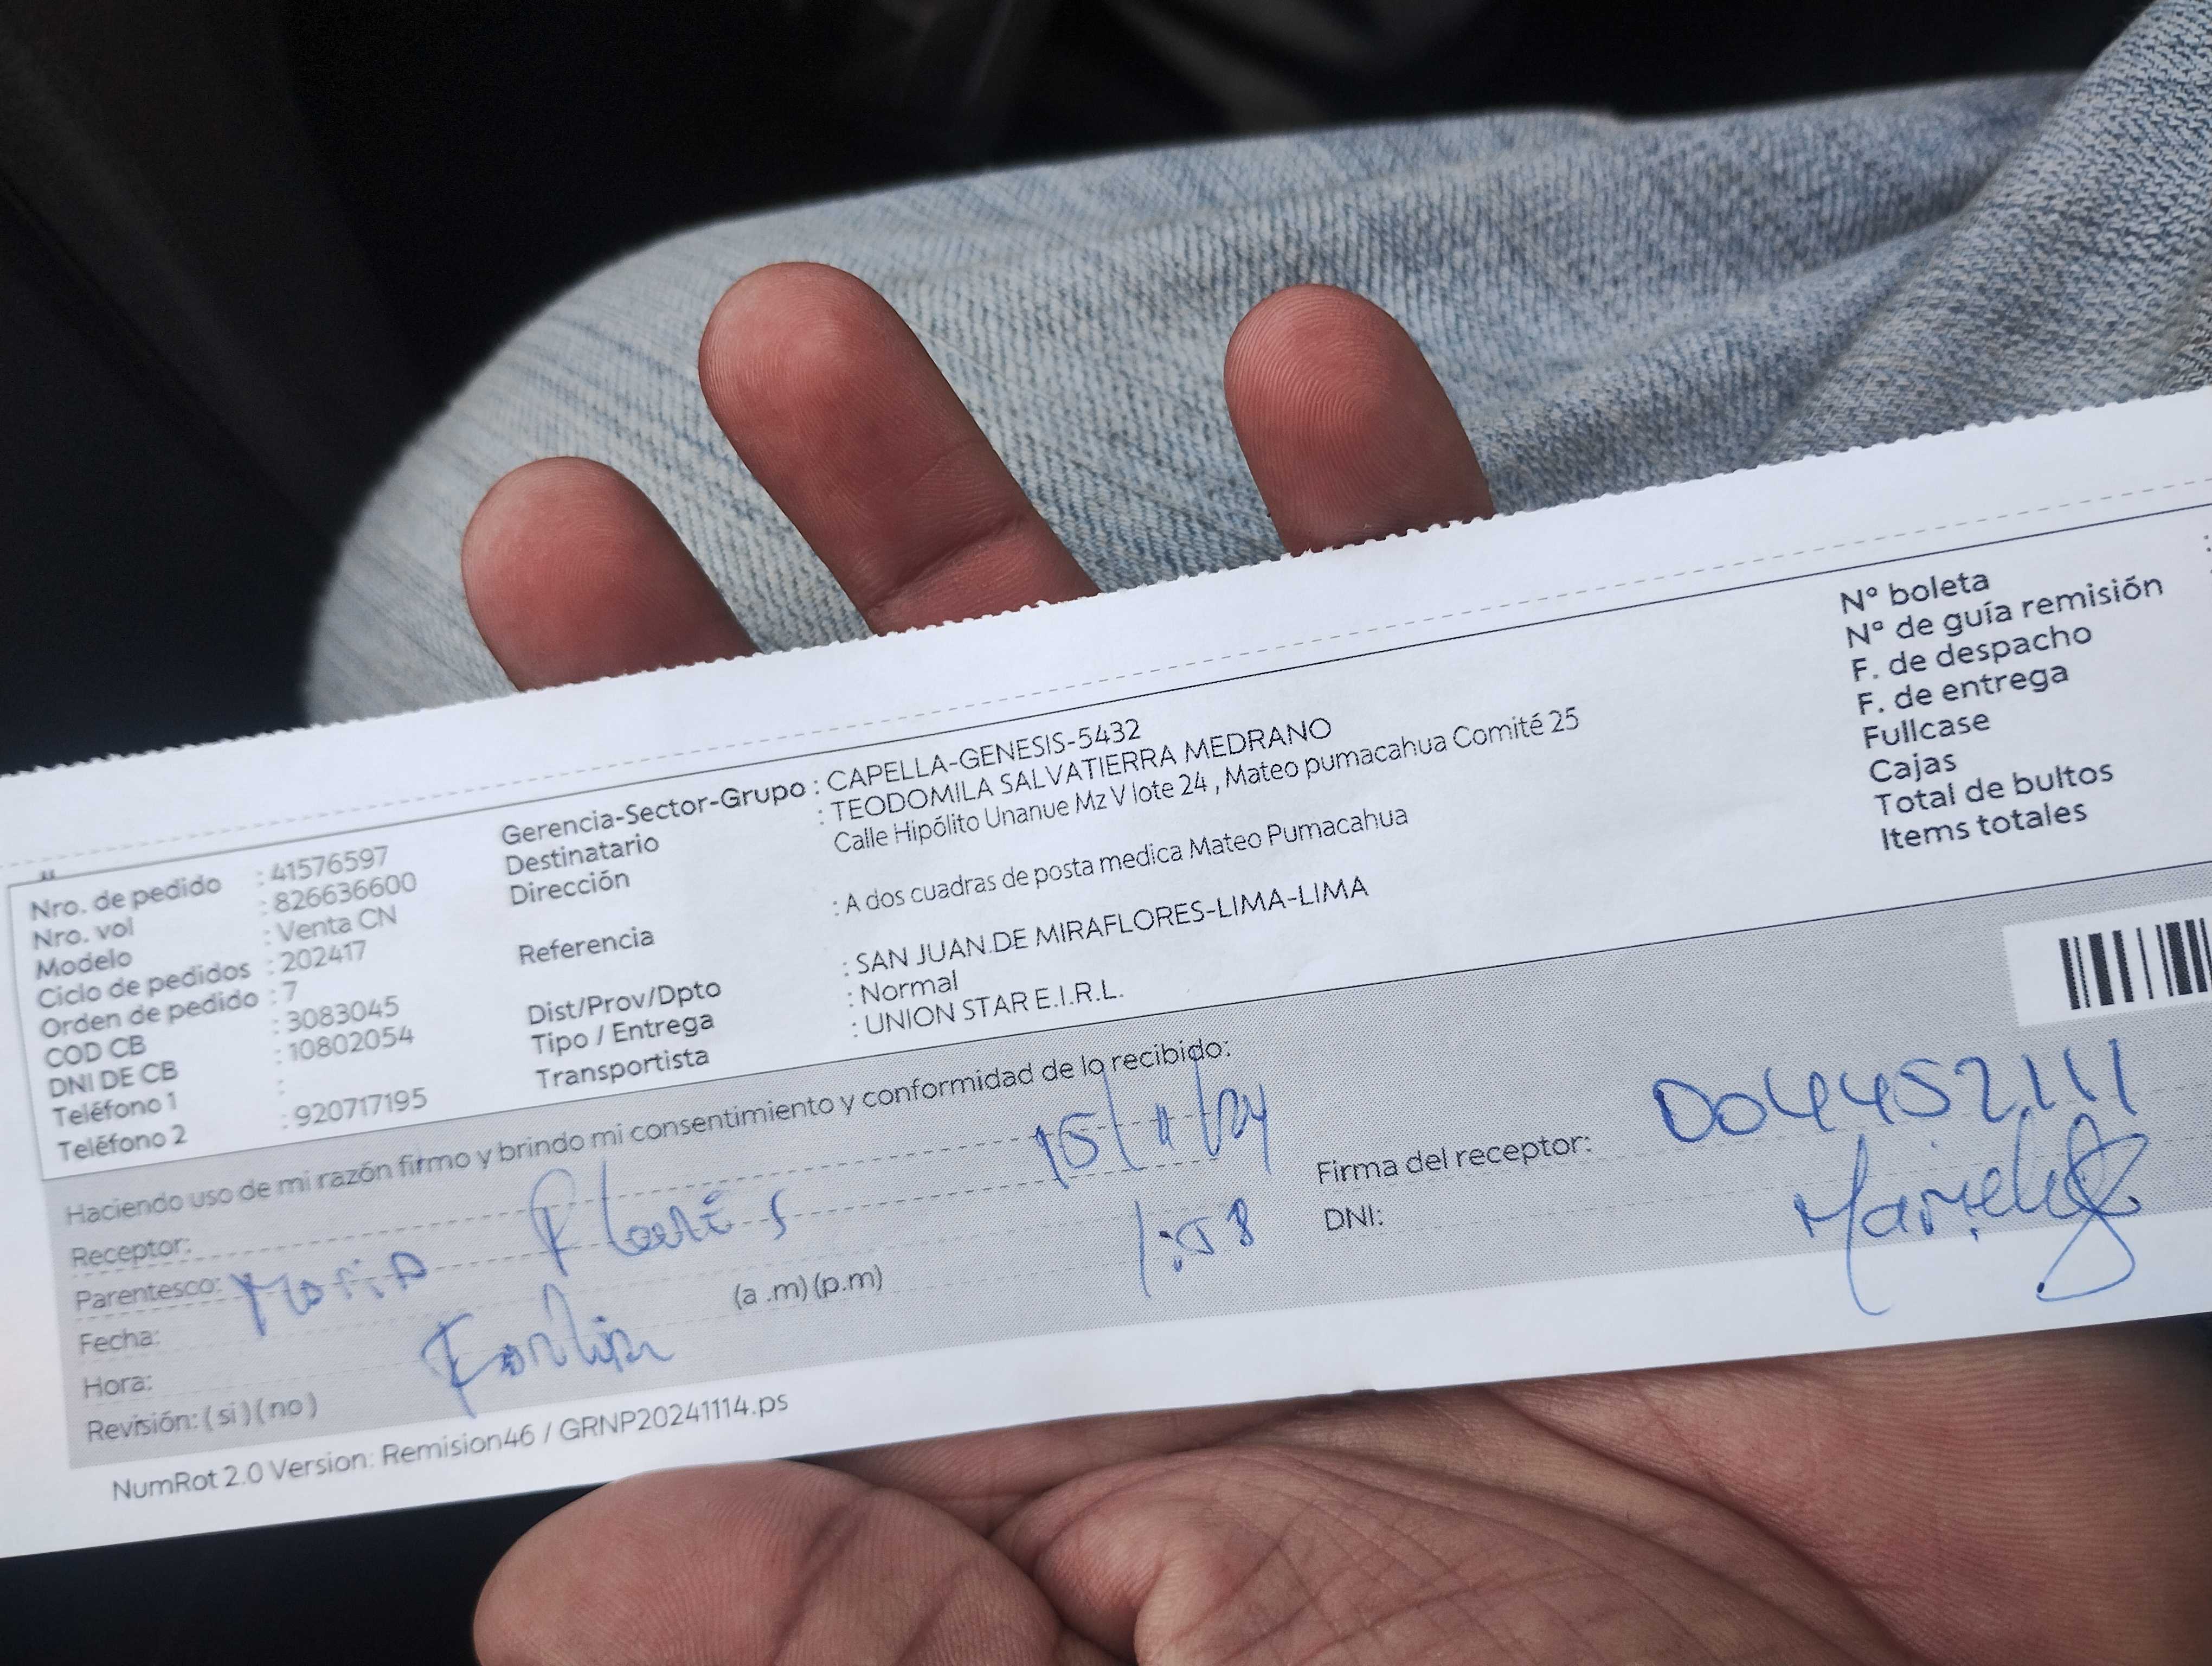 Nro. de pedido : 41576597
Nro. vol : 826636600
Modelo : Venta CN
Ciclo de pedidos : 202417
Orden de pedido : 7
COD CB : 3083045
DNI DE CB : 10802054
Teléfono 1 :
Teléfono 2 : 920717195
Gerencia-Sector-Grupo : CAPELLA-GENESIS-5432
Destinatario : TEODOMILA SALVATIERRA MEDRANO
Dirección Calle Hipólito Unanue Mz V lote 24 , Mateo pumacahua Comité 25
Referencia : A dos cuadras de posta medica Mateo Pumacahua
Dist/Prov/Dpto : SAN JUAN.DE MIRAFLORES-LIMA-LIMA
Tipo / Entrega : Normal
Transportista : UNION STAR E.I.R.L.
N° boleta
N° de guía remisión
F. de despacho
F. de entrega
Fullcase
Cajas
Total de bultos
Items totales
Haciendo uso de mi razón firmo y brindo mi consentimiento y conformidad de lo recibido:
Receptor:
Parentesco: Maria
Fecha: 15/11/24
Hora: (a .m) (p.m) 1:58
Revisión: ( si ) ( no )
Firma del receptor:
DNI:
NumRot 2.0 Version: Remision46 / GRNP20241114.ps